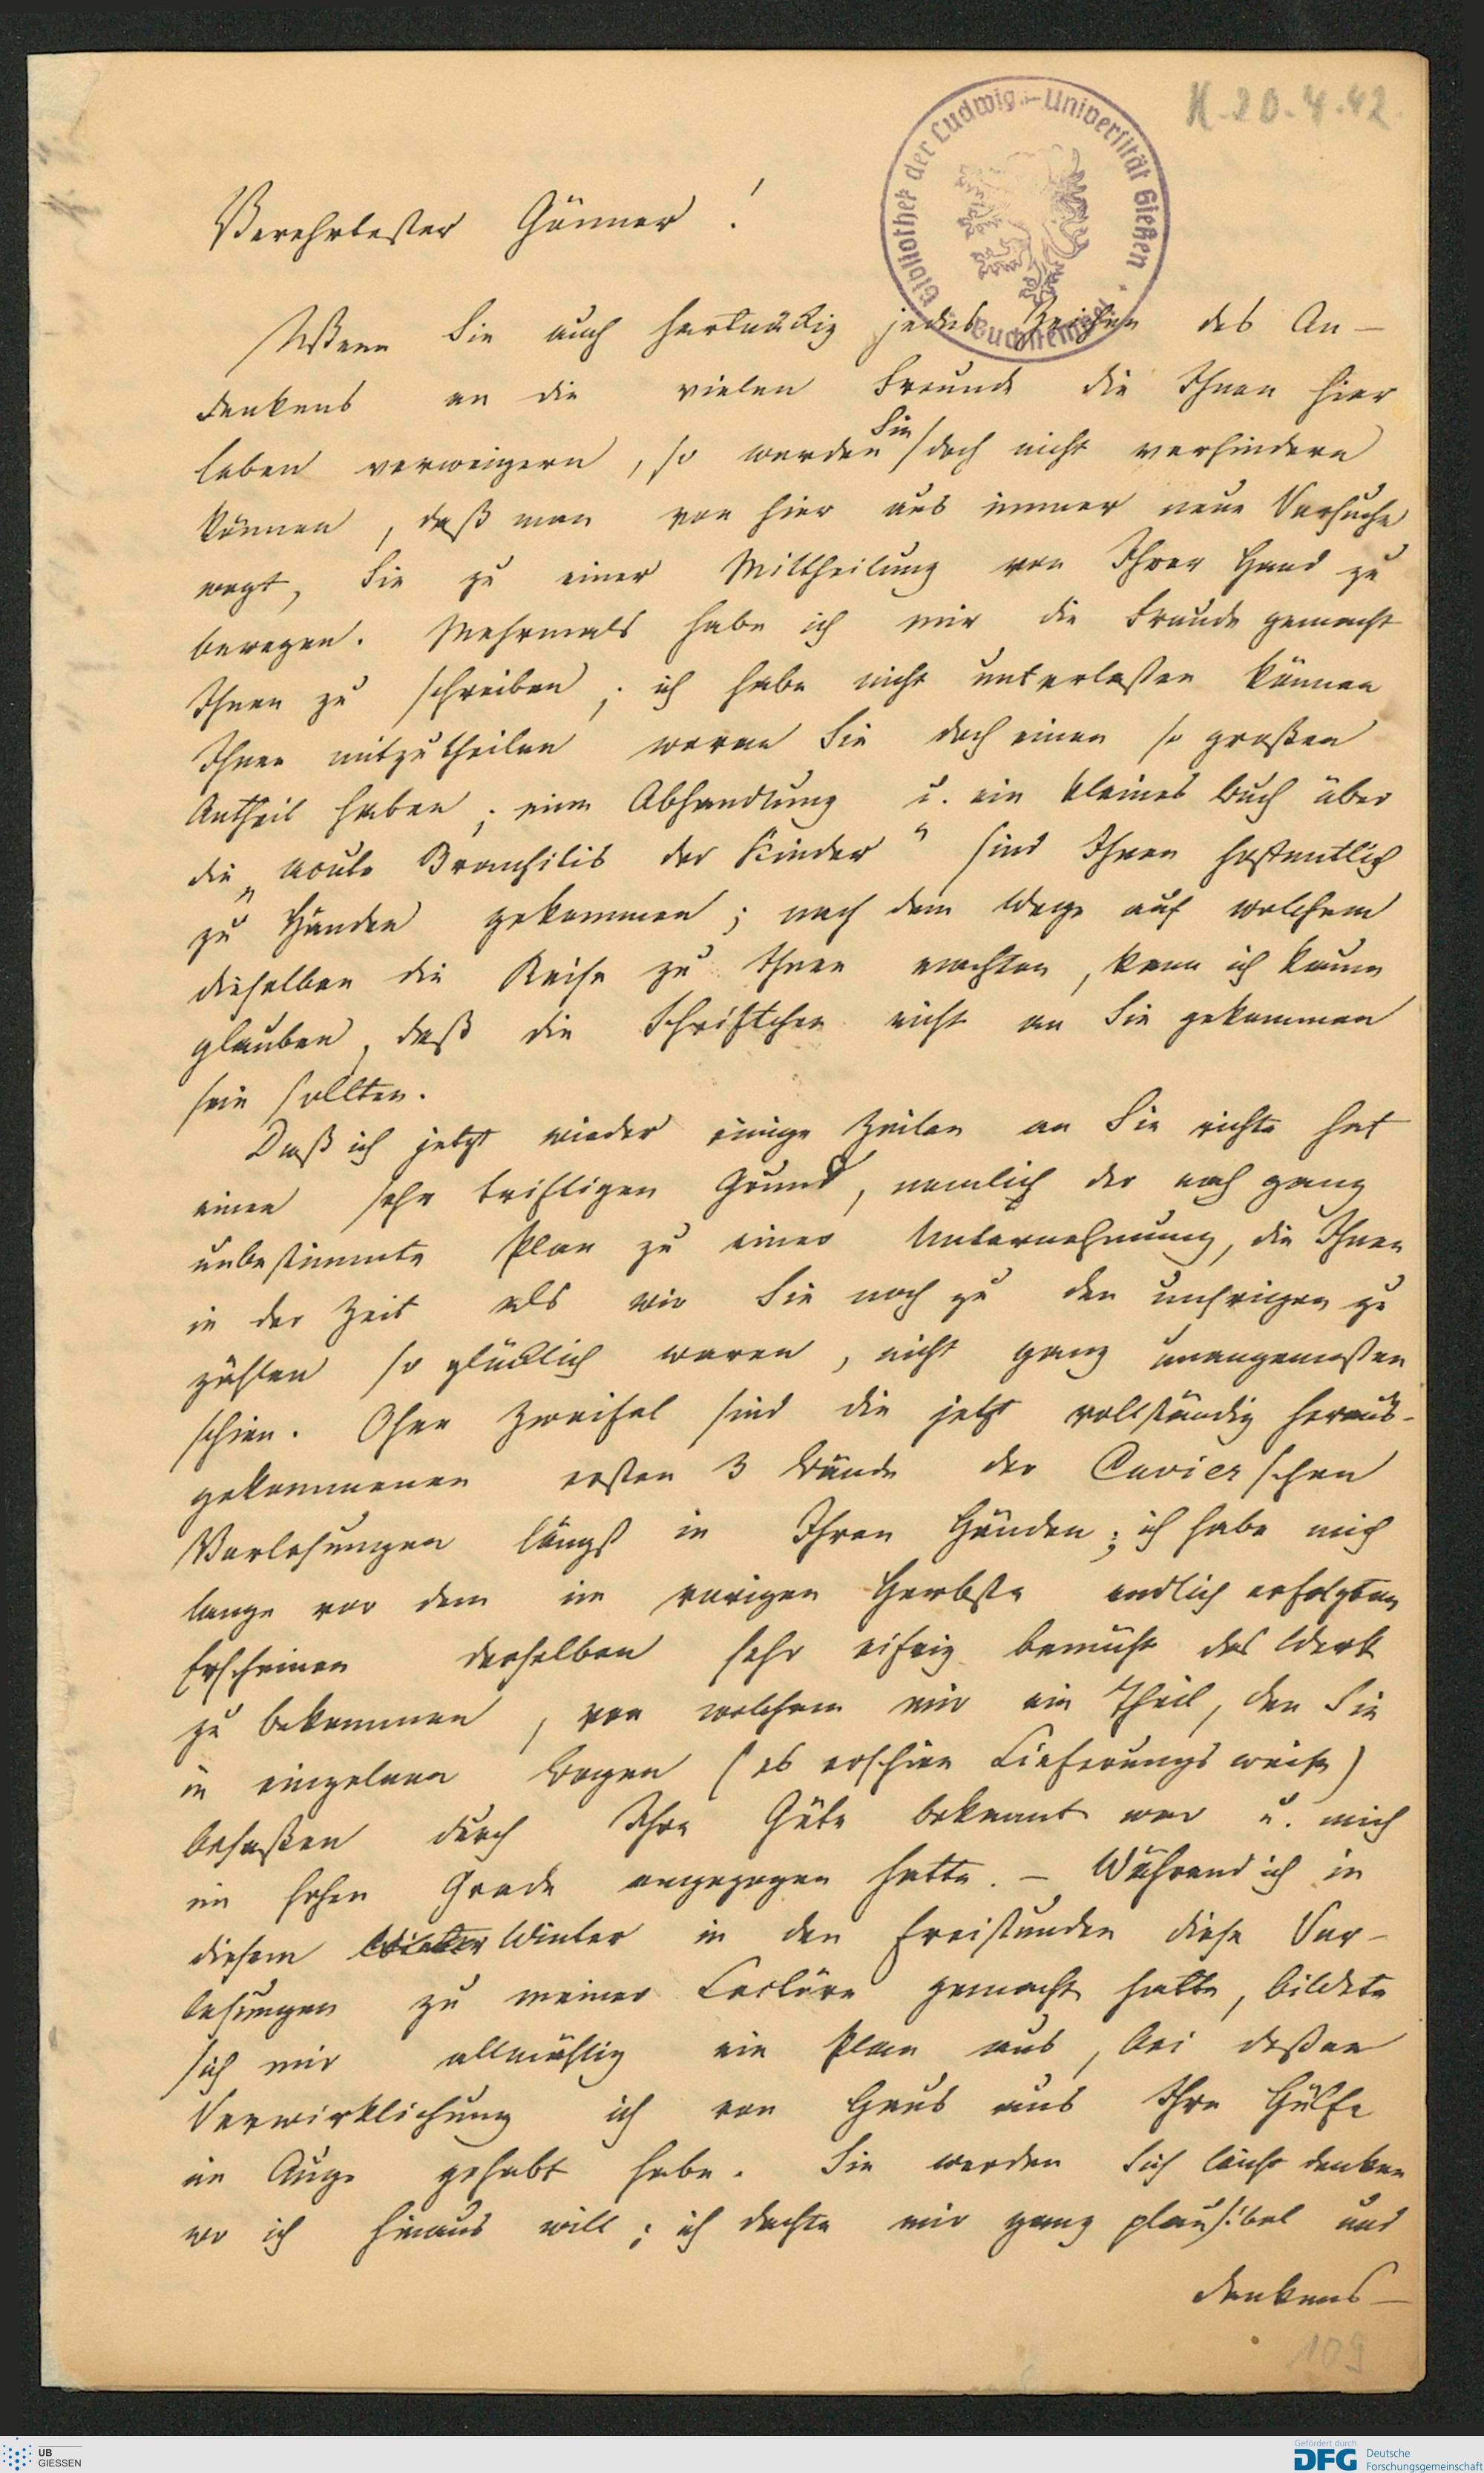 N. 20.4.42
Bibliothek der Ludwig-Universität Gießen
Verehrtester Gönner!
Wenn Sie auch hartnäckig jedes Zeichen des An-
denkens an die vielen Freunde die Ihnen hier
leben verweigern, so werden Sie doch nicht verhindern
können, daß man von hier aus immer neue Versuche
wagt, Sie zu einer Mittheilung von Ihrer Hand zu
bewegen. Mehrmals habe ich mir die Freude gemacht
Ihnen zu schreiben; ich habe nicht unterlaßen können
Ihnen mitzutheilen woran Sie doch einen so großen
Antheil haben; eine Abhandlung u. ein kleines Buch über
die „acute Bronchitis der Kinder“ sind Ihnen hoffentlich
zu Händen gekommen; nach dem Wege auf welchem
dieselben die Reise zu Ihnen machten, kann ich kaum
glauben, daß die Schriftchen nicht an Sie gekommen
sein sollten.
Daß ich jetzt wieder einige Zeilen an Sie richte hat
einen sehr triftigen Grund, nemlich der noch ganz
unbestimmte Plan zu einer Unternehmung, die Ihnen
in der Zeit als wir Sie noch zu den unsrigen zu
zählen so glücklich waren, nicht ganz unangemeßen
schien. Ohne Zweifel sind die jetzt vollständig heraus-
gekommenen ersten 3 Bände der Cuvierschen
Vorlesungen längst in Ihren Händen; ich habe mich
lange vor dem im vorigen Herbste endlich erfolgten
Erscheinen derselben sehr eifrig bemüht das Werk
zu bekommen, von welchem mir ein Theil, den Sie
in einzelnen Bogen (es erschien Lieferungsweise)
besaßen durch Ihre Güte bekannt war u. mich
im hohen Grade angezogen hatte. – Während ich in
diesem Winter Winter in den Freistunden diese Vor-
lesungen zu meiner Lectüre gemacht hatte, bildete
sich mir allmählig ein Plan aus, bei deßen
Verwirklichung ich von Haus aus Ihre Hülfe
im Auge gehabt habe. Sie werden sich leicht denken
wo ich hinaus will; ich dachte mir ganz plausibel und
denkens-
109
UB
GIESSEN
Gefördert durch
DFG Deutsche
Forschungsgemeinschaft